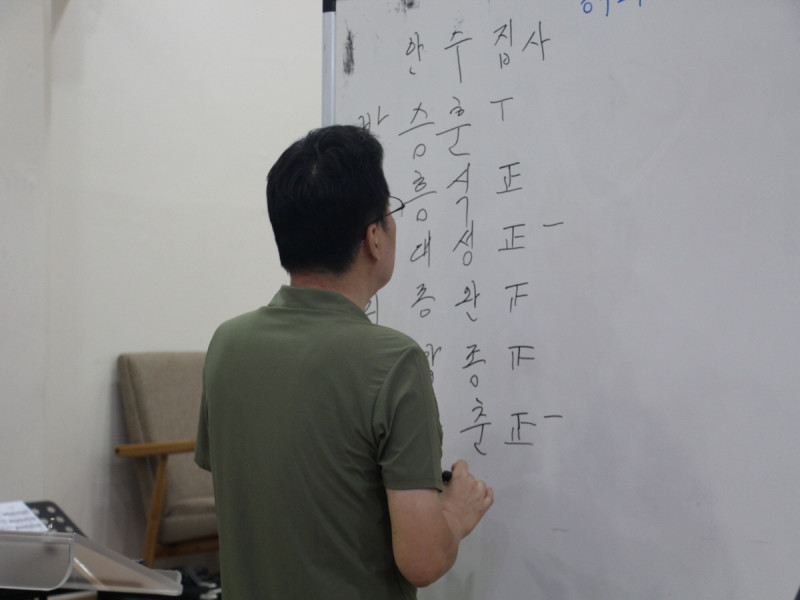 안수집사
승훈 T
흥식 正
대성 正一
종완 正
종 正
춘 正一